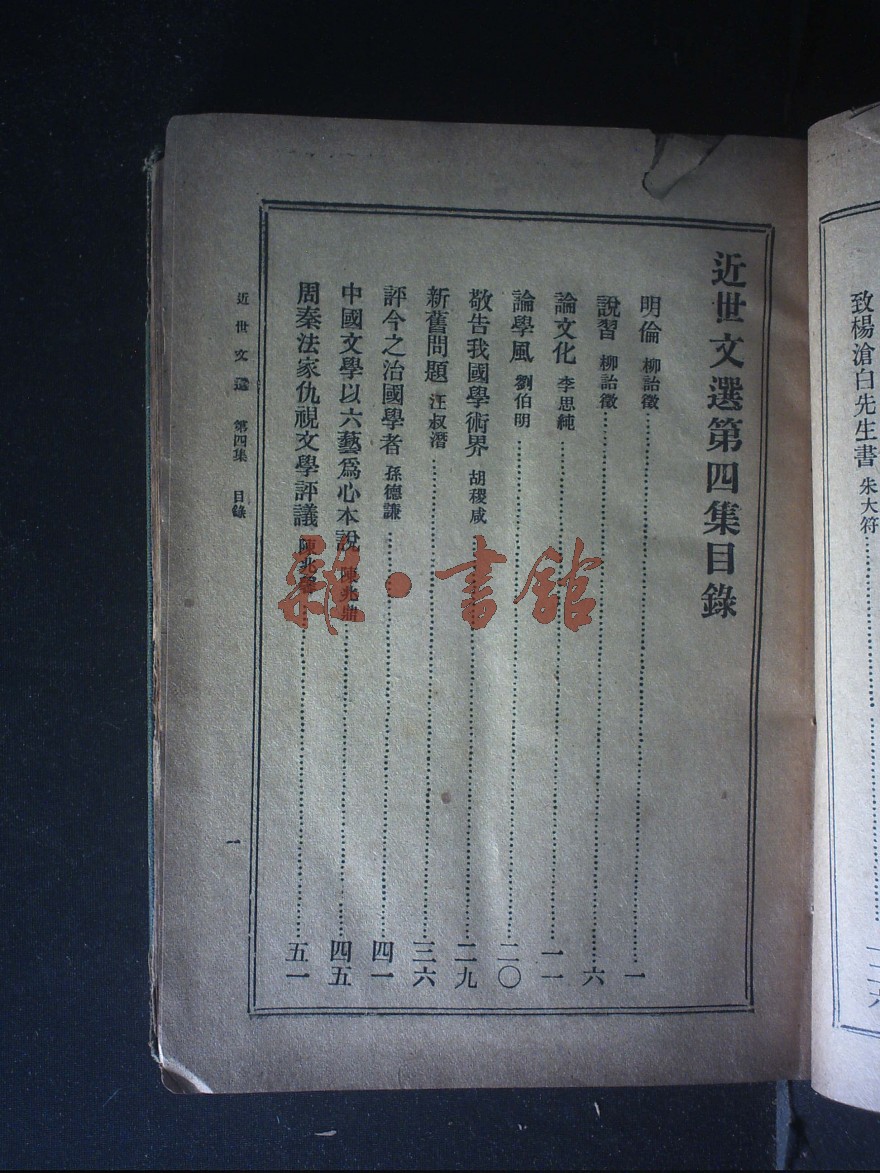 致楊滄白先生書 朱大符
近世文選第四集目錄
明倫 柳詒徵 一
說習 柳詒徵 六
論文化 李思純 一一
論學風 劉伯明 二〇
敬告我國學術界 胡稷咸 二九
新舊問題 汪叔潛 三六
評今之治國學者 孫德謙 四一
中國文學以六藝爲心本說 陳兆鼎 四五
周秦法家仇視文學評議 陳兆馨 五一
近世文選 第四集 目錄
一
雜·書館